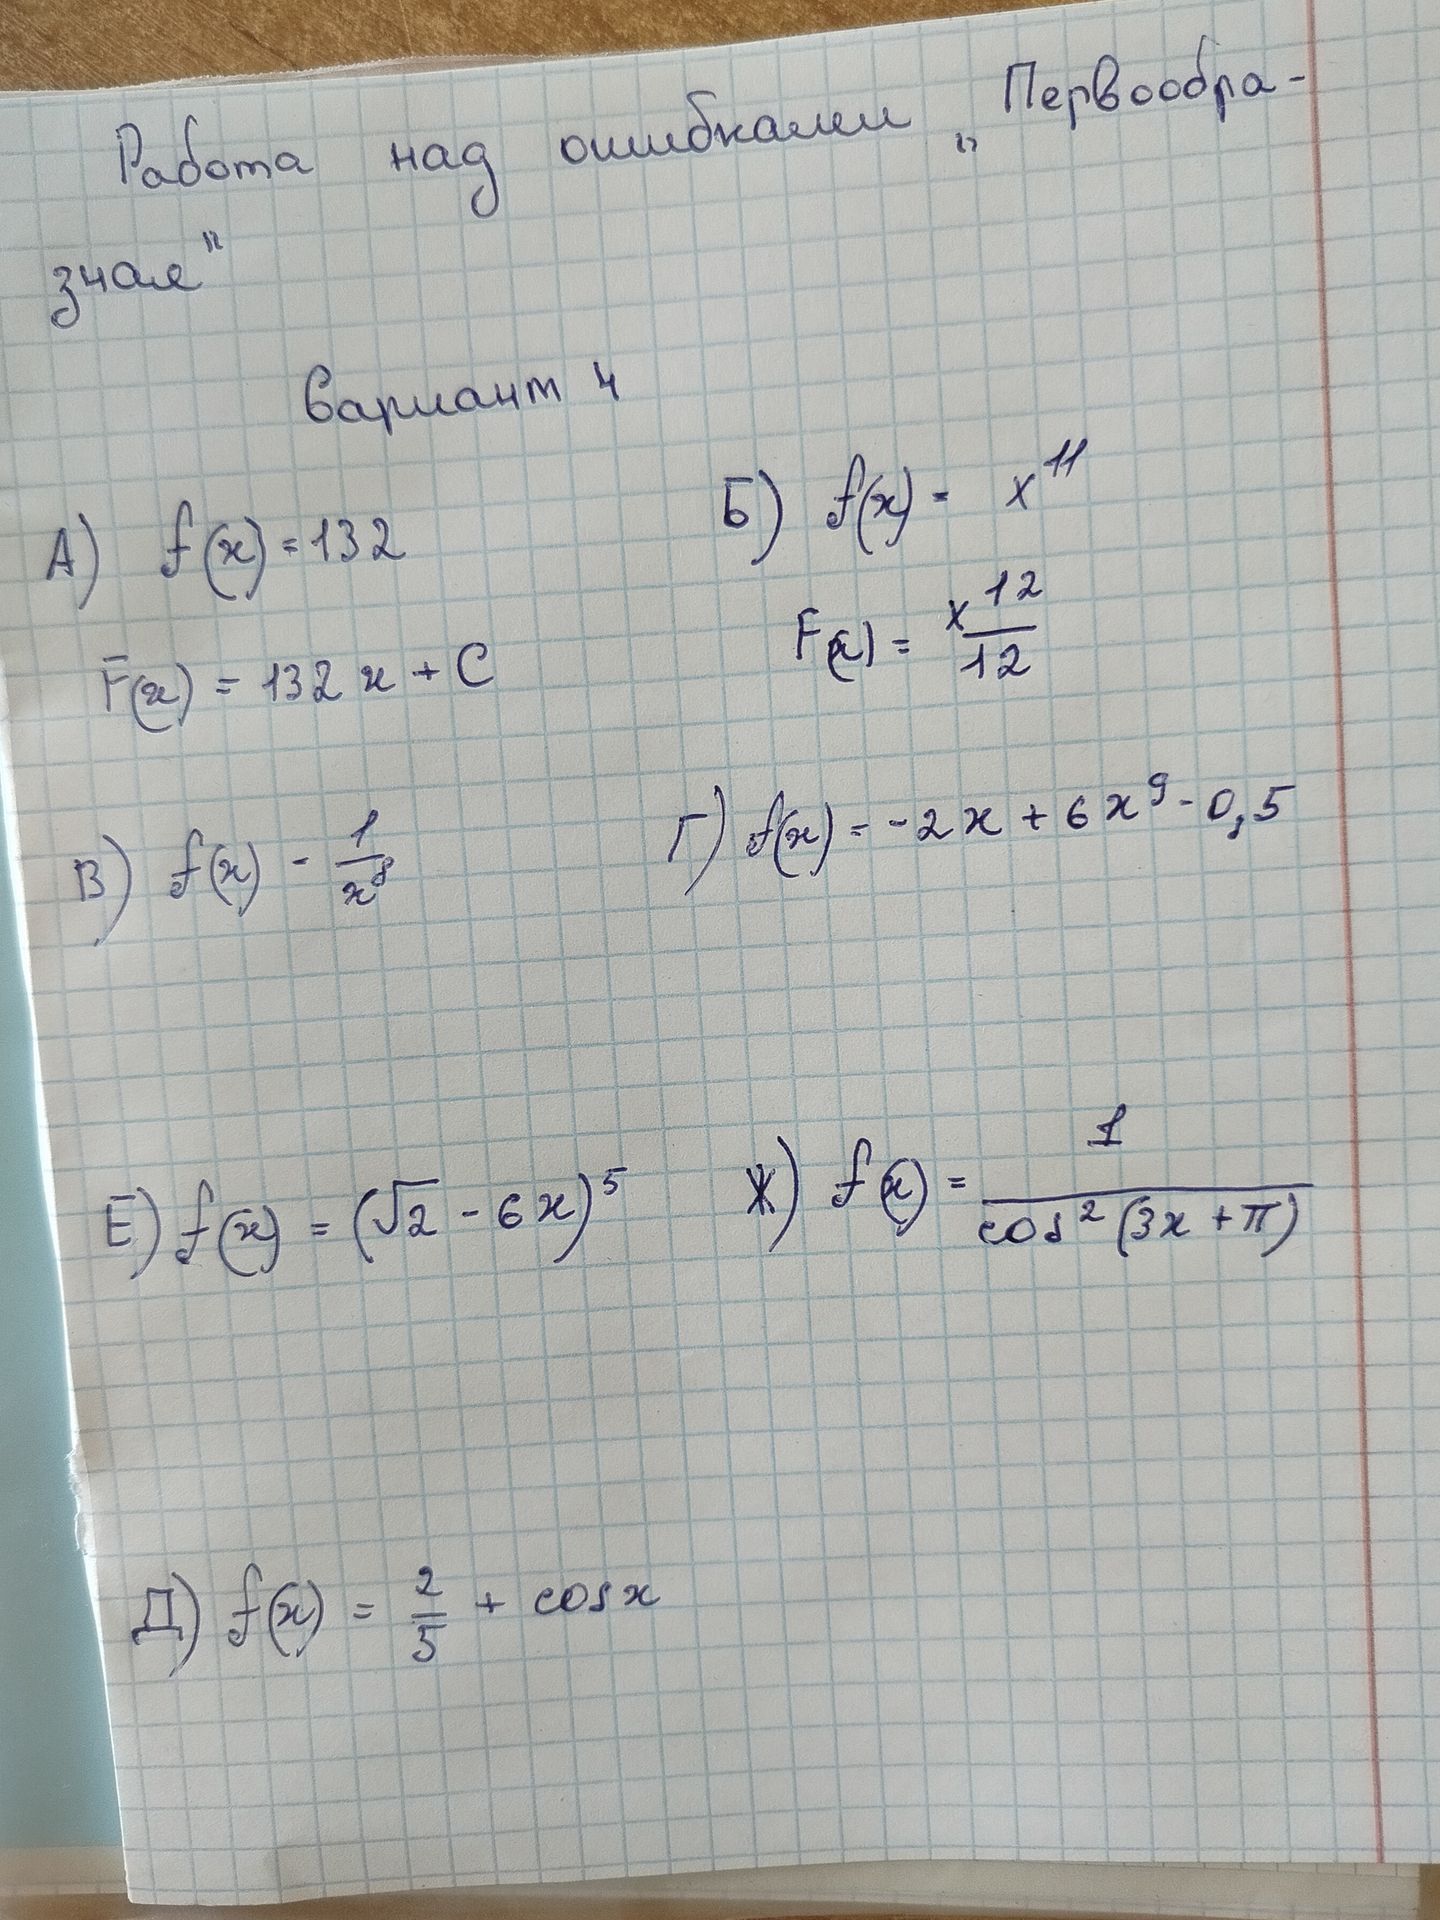 Работа над ошибками „Первообра-
зная"
Вариант 4
А) f(x) = 132
Б) f(x) = x^11
F(x) = 132x + C
F(x) = x^12/12
В) f(x) - 1/x^8
Г) f(x) = -2x + 6x^9 - 0,5
Е) f(x) = (√2 - 6x)^5
Ж) f(x) = 1/cos^2(3x + π)
Д) f(x) = 2/5 + cosx